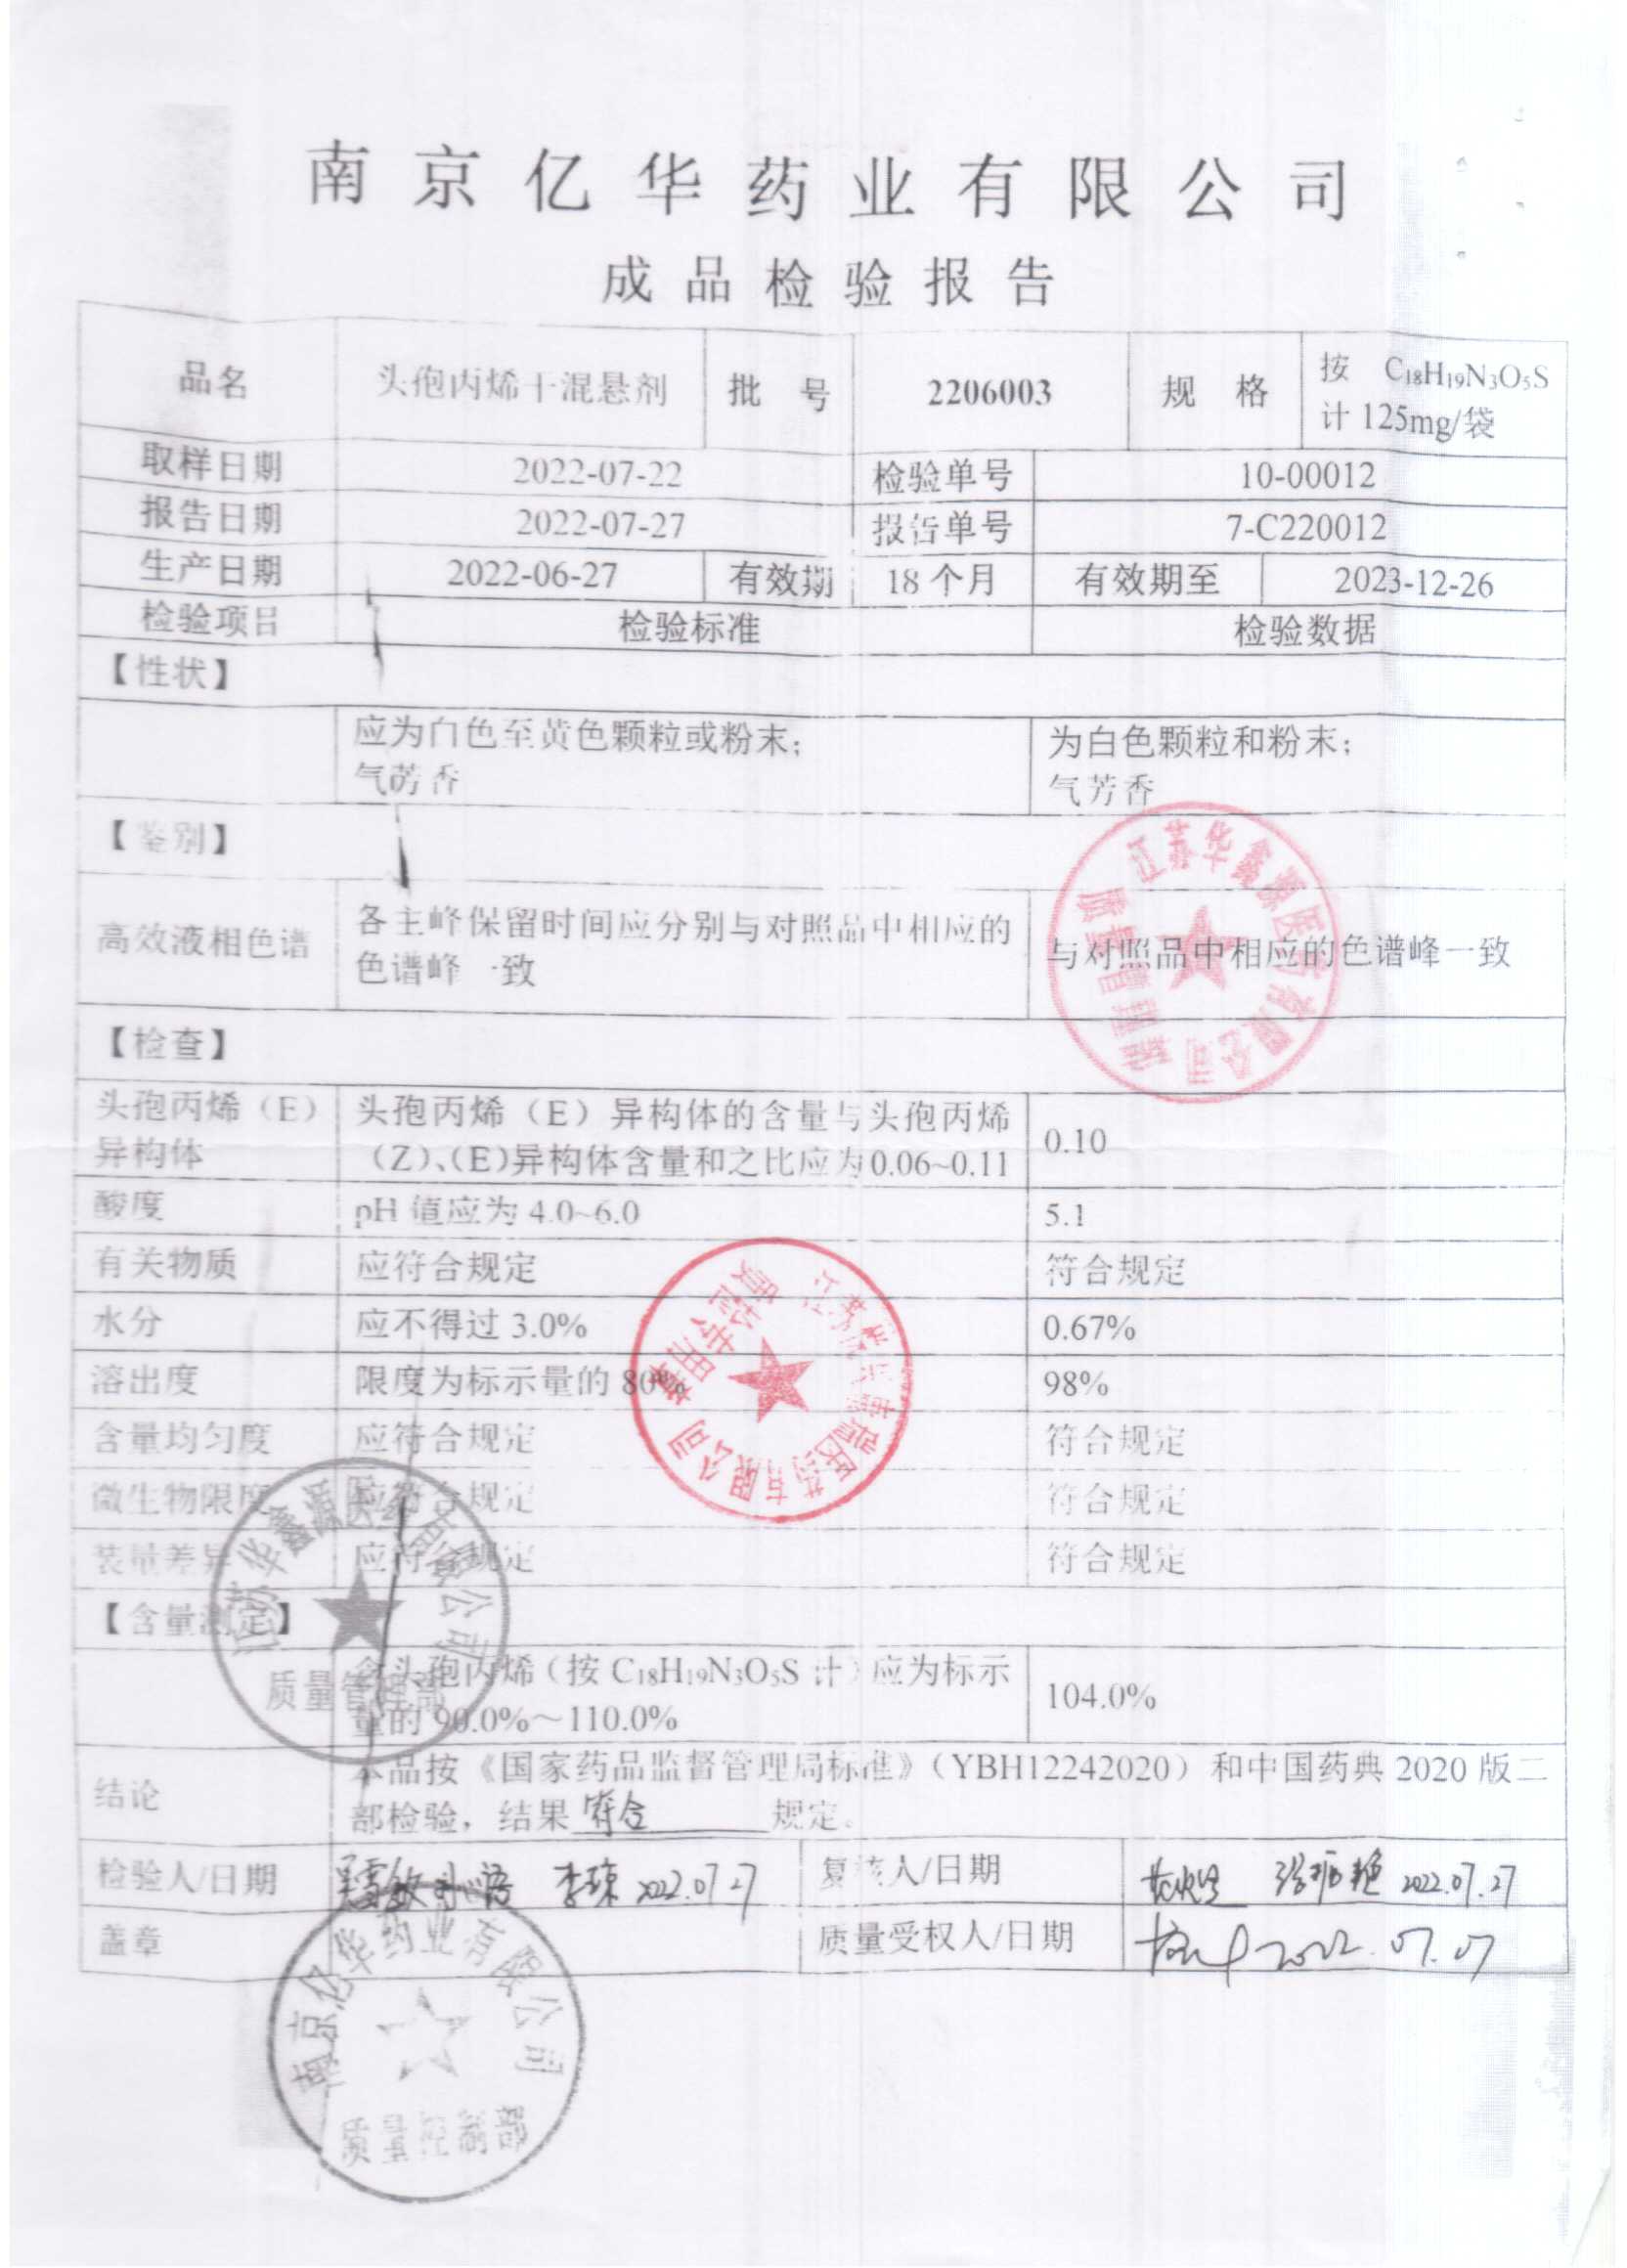 南京亿华药业有限公司
成品检验报告
品名 头孢丙烯干混悬剂 批 号 2206003 规 格 按 C₁₈H₁₉N₃O₅S
计 125mg/袋
取样日期 2022-07-22 检验单号 10-00012
报告日期 2022-07-27 报告单号 7-C220012
生产日期 2022-06-27 有效期 18 个月 有效期至 2023-12-26
检验项目 检验标准 检验数据
【性状】
应为白色至黄色颗粒或粉末； 为白色颗粒和粉末；
气芳香 气芳香
【鉴别】
高效液相色谱 各主峰保留时间应分别与对照品中相应的 与对照品中相应的色谱峰一致
色谱峰一致
【检查】
头孢丙烯（E） 头孢丙烯（E）异构体的含量与头孢丙烯 0.10
异构体 （Z）、（E）异构体含量和之比应为0.06~0.11
酸度 pH 值应为 4.0~6.0 5.1
有关物质 应符合规定 符合规定
水分 应不得过 3.0% 0.67%
溶出度 限度为标示量的 80% 98%
含量均匀度 应符合规定 符合规定
微生物限度 应符合规定 符合规定
装量差异 应符合规定 符合规定
【含量测定】
含头孢丙烯（按 C₁₈H₁₉N₃O₅S 计）应为标示 104.0%
量的 90.0%～110.0%
结论 本品按《国家药品监督管理局标准》（YBH12242020）和中国药典 2020 版二
部检验，结果 符合 规定。
检验人/日期 李琼 2022.07.27 复核人/日期 2022.07.27
盖章 质量受权人/日期 2022.07.27
江苏华鑫源医药有限公司
质量管理部
质量管理部
江苏华鑫源医药有限公司
质量管理部
南京亿华药业有限公司
质量控制部